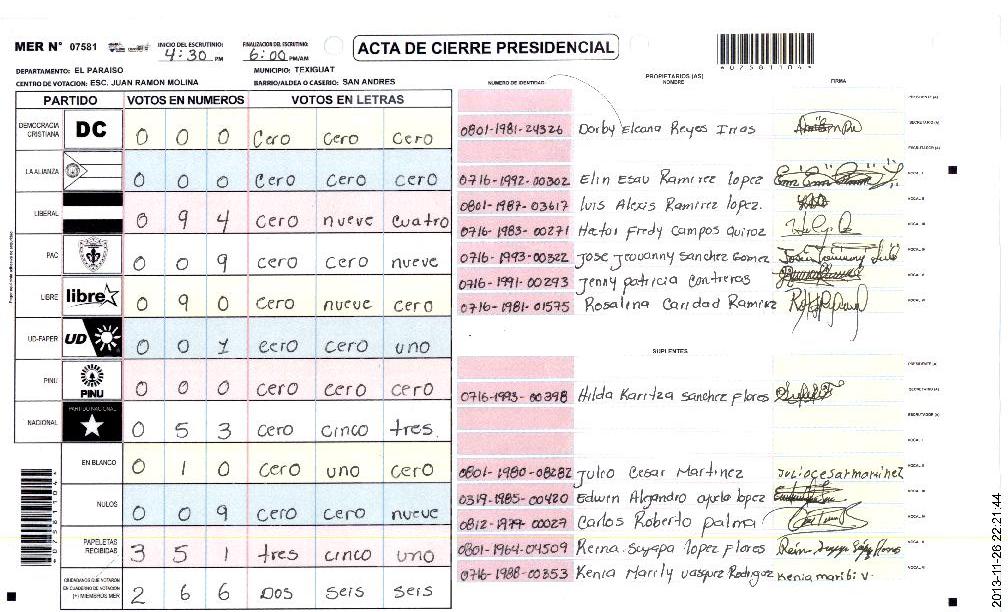 MER N° 07581
INICIO DEL ESCRUTINIO: 4:30 PM
FINALIZACION DEL ESCRUTINIO: 6:00 PM/AM
ACTA DE CIERRE PRESIDENCIAL
DEPARTAMENTO: EL PARAISO
MUNICIPIO: TEXIGUAT
CENTRO DE VOTACION: ESC. JUAN RAMON MOLINA
BARRIO/ALDEA O CASERIO: SAN ANDRES
PARTIDO VOTOS EN NUMEROS VOTOS EN LETRAS
DEMOCRACIA CRISTIANA DC 0 0 0 Cero cero cero
LA ALIANZA 0 0 0 cero cero cero
LIBERAL 0 9 4 cero nueve cuatro
PAC 0 0 9 cero cero nueve
LIBRE libre 0 9 0 cero nueve cero
UD-FAPER UD 0 0 1 cero cero uno
PINU PINU 0 0 0 cero cero cero
NACIONAL PARTIDO NACIONAL 0 5 3 cero cinco tres.
EN BLANCO 0 1 0 cero uno cero
NULOS 0 0 9 cero cero nueve
PAPELETAS RECIBIDAS 3 5 1 tres cinco uno
CIUDADANOS QUE VOTARON EN CUADERNO DE VOTACION (+) MIEMBROS MER 2 6 6 DOS seis seis
NUMERO DE IDENTIDAD
PROPIETARIOS (AS)
NOMBRE
FIRMA
PRESIDENTE (A)
0801-1981-24326 Dorby Elcana Reyes Irias SECRETARIO (A)
ESCRUTADOR (A)
0716-1992-00302 Elin Esau Ramirez lopez VOCAL I
0801-1987-03617 luis Alexis Ramirez lopez. VOCAL II
0716-1983-00271 Hector Fredy Campos Quiroz VOCAL III
0716-1993-00322 Jose Jeovanny Sanchez Gomez VOCAL IV
0716-1991-00293 Jenny patricia Contreras VOCAL V
0716-1981-01575 Rosalina Caridad Ramirez VOCAL VI
SUPLENTES
PRESIDENTE (A)
0716-1993-00398 Hilda Karitza sanchez flores SECRETARIO (A)
ESCRUTADOR (A)
VOCAL I
0801-1980-08282 Julio Cesar Martinez juliocesarmartinez VOCAL II
0319-1985-00420 Edwin Alejandro lopez VOCAL III
0812-1977-00027 Carlos Roberto palma VOCAL IV
0801-1964-04509 Reina Suyapa lopez Flores VOCAL V
0716-1988-00353 Kenia Marily vasquez Rodriguez Kenia VOCAL VI
2013-11-26 22:21:44